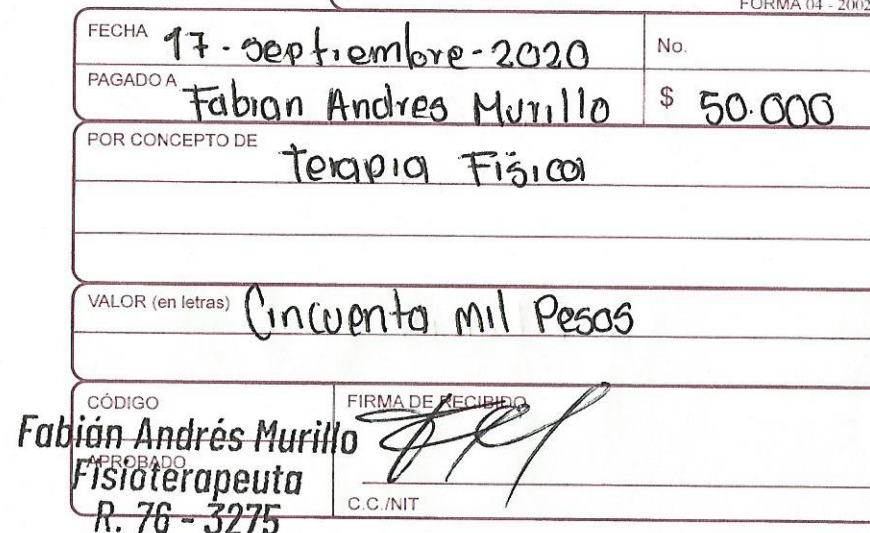 FORMA 04 - 2002
FECHA 17 - septiembre - 2020 No.
PAGADO A Fabian Andres Murillo $ 50.000
POR CONCEPTO DE terapia Fisica
VALOR (en letras) Cincuenta mil Pesos
CÓDIGO FIRMA DE RECIBIDO
Fabián Andrés Murillo
APROBADO
Fisioterapeuta
C.C./NIT
R. 76 - 3275